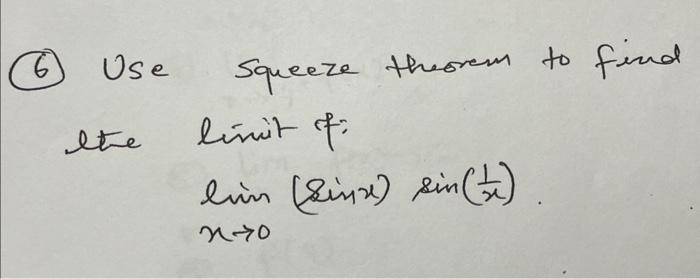 ⑥ Use squeeze theorem to find
the limit of:
lim (sinx) sin(1/x).
x→0